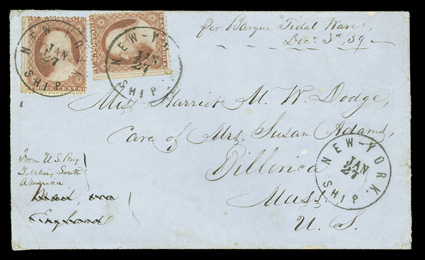 per Barque "Tidal Wave"
Dec. 3d, 59
NEW-YORK
JAN
27
SHIP
NEW-YORK
JAN
27
SHIP
Miss Harriet M. W. Dodge,
Care of Mrs. Susan Adams,
Billerica
Mass.
U. S.
NEW-YORK.
JAN
27
SHIP
From U.S.
South
America